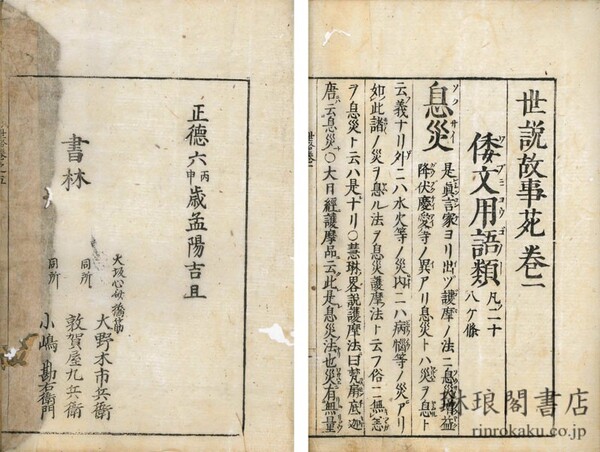 世説故事苑卷一
倭文用語類 凡二十八ケ條
息災 是眞言家ヨリ出ヅ護摩ノ法ニ息災増益
降伏慶愛等ノ異アリ息災トハ災ヲ息ト
云義ナリ外ニハ水火等ノ災内ニハ病惱等ノ災アリ
如此諸ノ災ヲ息ル法ヲ息災護摩法ト云フ俗ニ無恙
ヲ息災ト云ハ是ナリ○慧琳畧説護摩法曰
唐云息災○大日經護摩品云此是息災法也災有無量
正德六丙申歳孟陽吉旦
書林
大坂心斎橋筋
大野木市兵衛
同所
敦賀屋九兵衛
同所
小嶋勘右衛門
琳琅閣書店
rinrokaku.co.jp